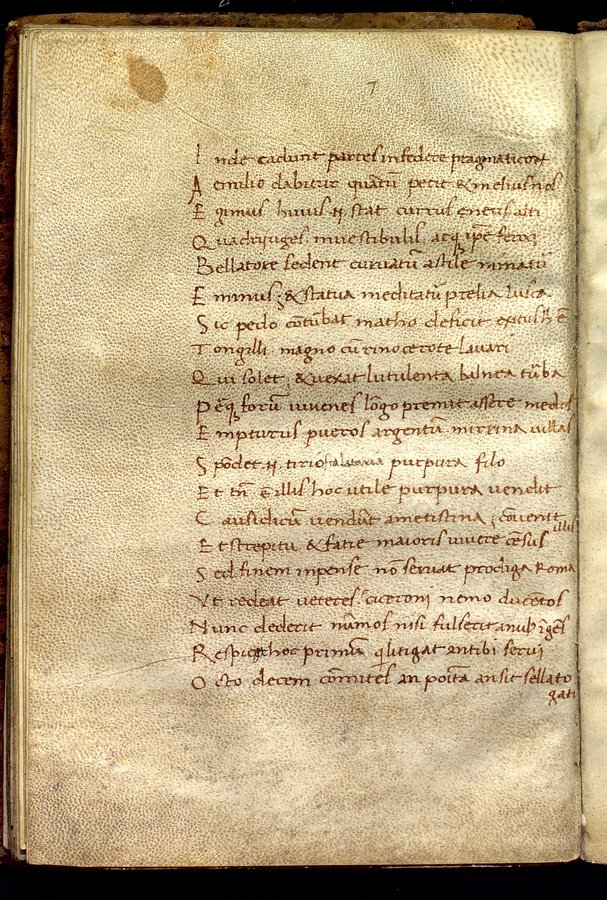 7
Inde cadunt partes infedere pragmaticoꝝ
Aemilio dabitur quātū petit & melius nos
Egimus huius .n. stat currus eneus alti
Quadrijuges inuestibulis, atq; ipse feroci
Bellatore sedent curuatū astile minatū
Eminus, & statua meditatū prelia lusca
Sic pedo cōtūbat matho deficit exitus h̄ ē
Tongilli magno cū rinocerote lauari
Qui solet, & uexat lutulenta balnea tūba
Perq; forū iuuenes lōgo premit assere medos
Empturus pueros argentū mirrina uillas
Spōdet .n. tirio stalataria purpura filo
Et tn̄ ē illis hoc utile purpura uendit
Causidicū uendūt ametistina, cōuenit illis
Et strepitu & facie maioris uiuere cēsus
Sed finem inpense nō seruat prodiga Roma
Vt redeat ueteres ciceroni nemo ducētos
Nunc dederit nūmos nisi fulserit anulꝰ īgēs
Respicit hoc primū qi litigat antibi serui
Octo decem comites an post ā an sit sella to
gati